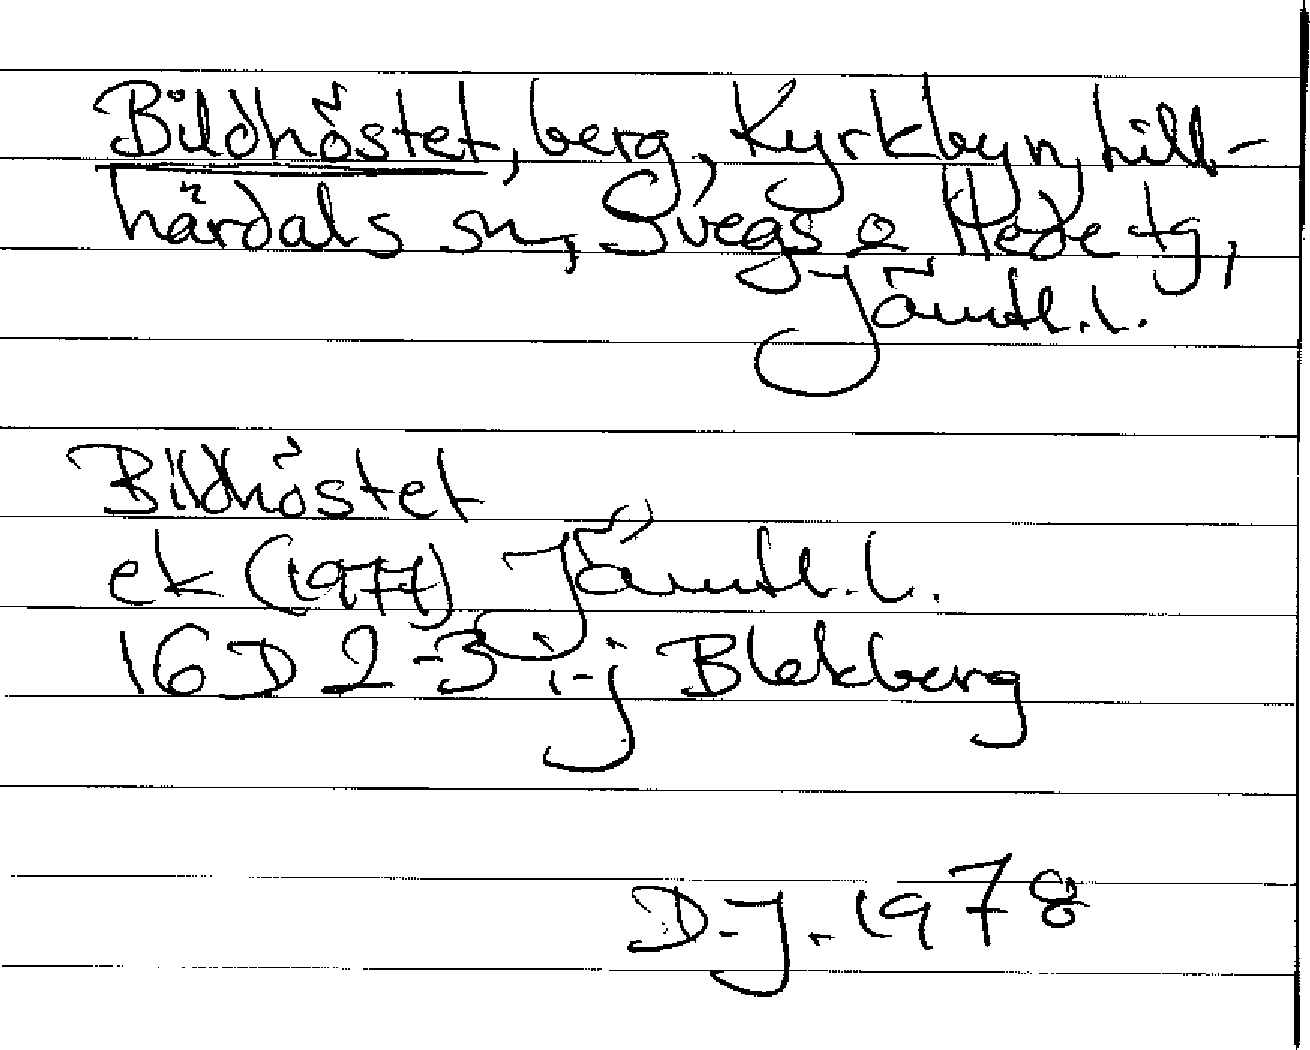 Bildhöstet, berg, Kyrkbyn, Lill-
härdals sn, Svegs o Hede tg,
Jämtl. l.
Bildhöstet
ek (1977) Jämtl. l.
16 D 2-3 i-j Blekberg
D. J. 1978